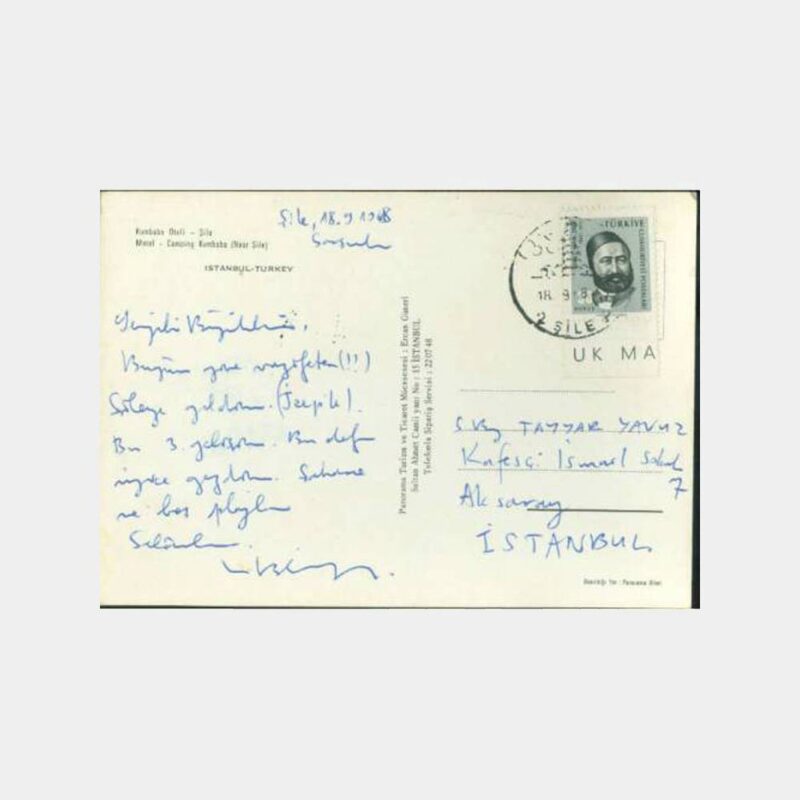 Kumbaba Oteli - Şile
Motel - Camping Kumbaba (Near Şile)
ISTANBUL-TURKEY
Şile, 18.9 1968
Bugün yine vazifeten(!!)
Şileye geldim.
Bu 3. gelişim. Bu defa
iyice gezdim. Sahane
ve boş plajla
Selâmlar.
Panorama Turizm ve Ticaret Müessesesi : Ercan Güneri
Sultan Ahmet Camii yanı No : 15 İSTANBUL
Telefonla Sipariş Servisi : 22 07 48
TÜRKİYE
CUMHURİYETİ POSTALARI
18 9
2 ŞİLE
UK MA
S. Bay TAYYAR YAVUZ
Kafesçi İsmail Sokak
7
Aksaray
İSTANBUL